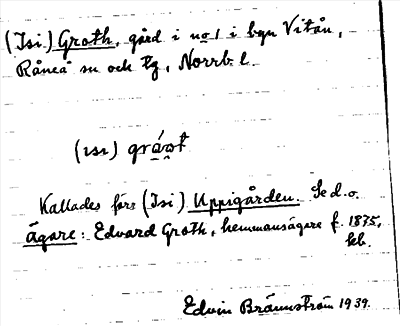 (Isi.) Groth, gård i no 1 i byn Vitån,
Råneå sn och tg, Norrb. l.
(ɩsɩ)
Kallades förr (Isi) Uppigården. Se d.o.
Ägare: Edvard Groth, hemmansägare f. 1875,
Edvin Brännström 1939.